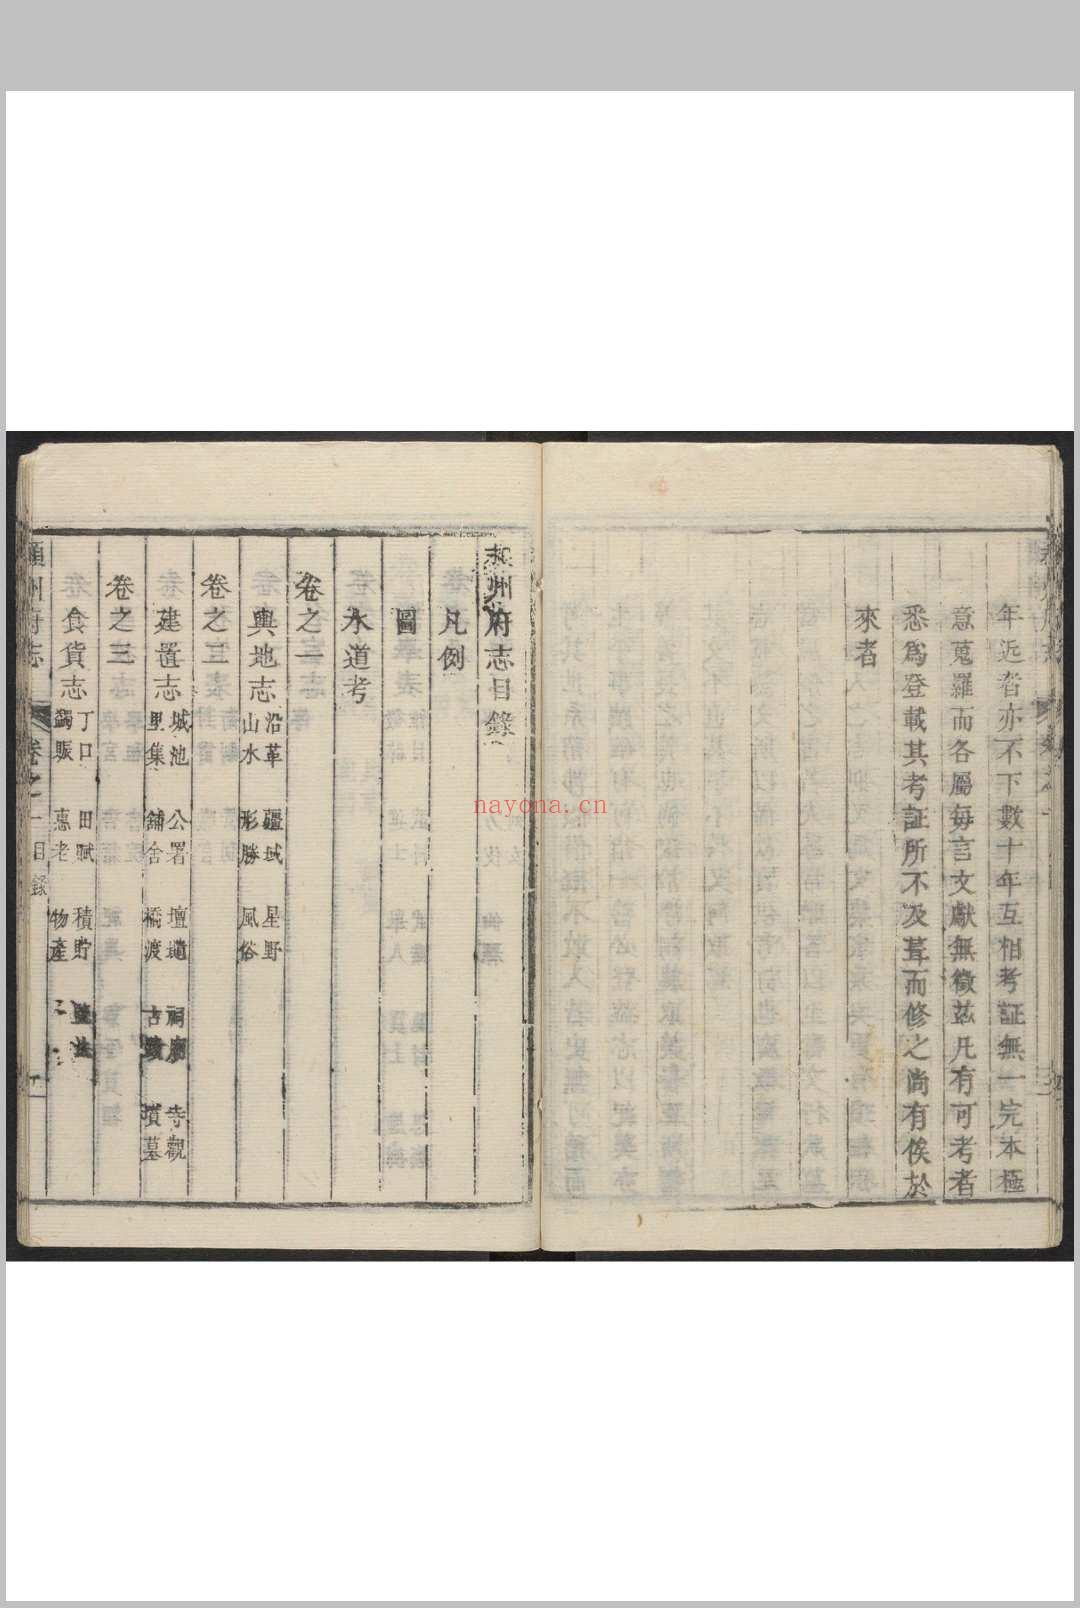 年近者亦不下數十年互相考証無一完本極
意蒐羅而各屬每言文獻無徵茲凡有可考者
悉爲登載其考証所不及葺而修之尚有俟於
來者
州府志目錄
凡例
圖
水道考
卷之一
輿地志 沿革 疆域 星野 山水 形勝 風俗
卷之二
建置志 城池 公署 壇壝 祠廟 寺觀 里集 舖舍 橋渡 古蹟 墳墓
卷之三
食貨志 丁口 田賦 積貯 鹽法 蠲賑 惠老 物產
州府志 卷之 目錄
nayona.cn